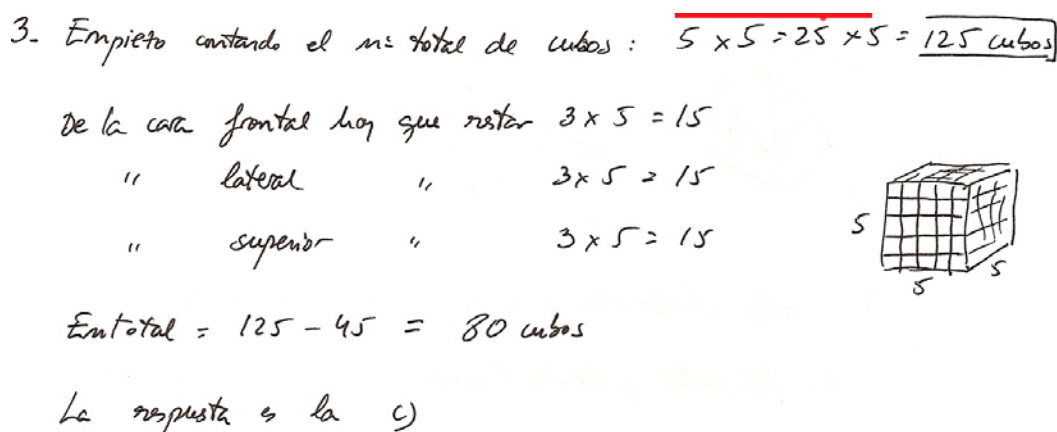 3- Empiezo contando el nº total de cubos : 5 x 5 = 25 x 5 = 125 cubos
De la cara frontal hay que restar 3 x 5 = 15
" lateral " 3 x 5 = 15
" superior " 3 x 5 = 15
5
5
5
En total = 125 - 45 = 80 cubos
La respuesta es la c)